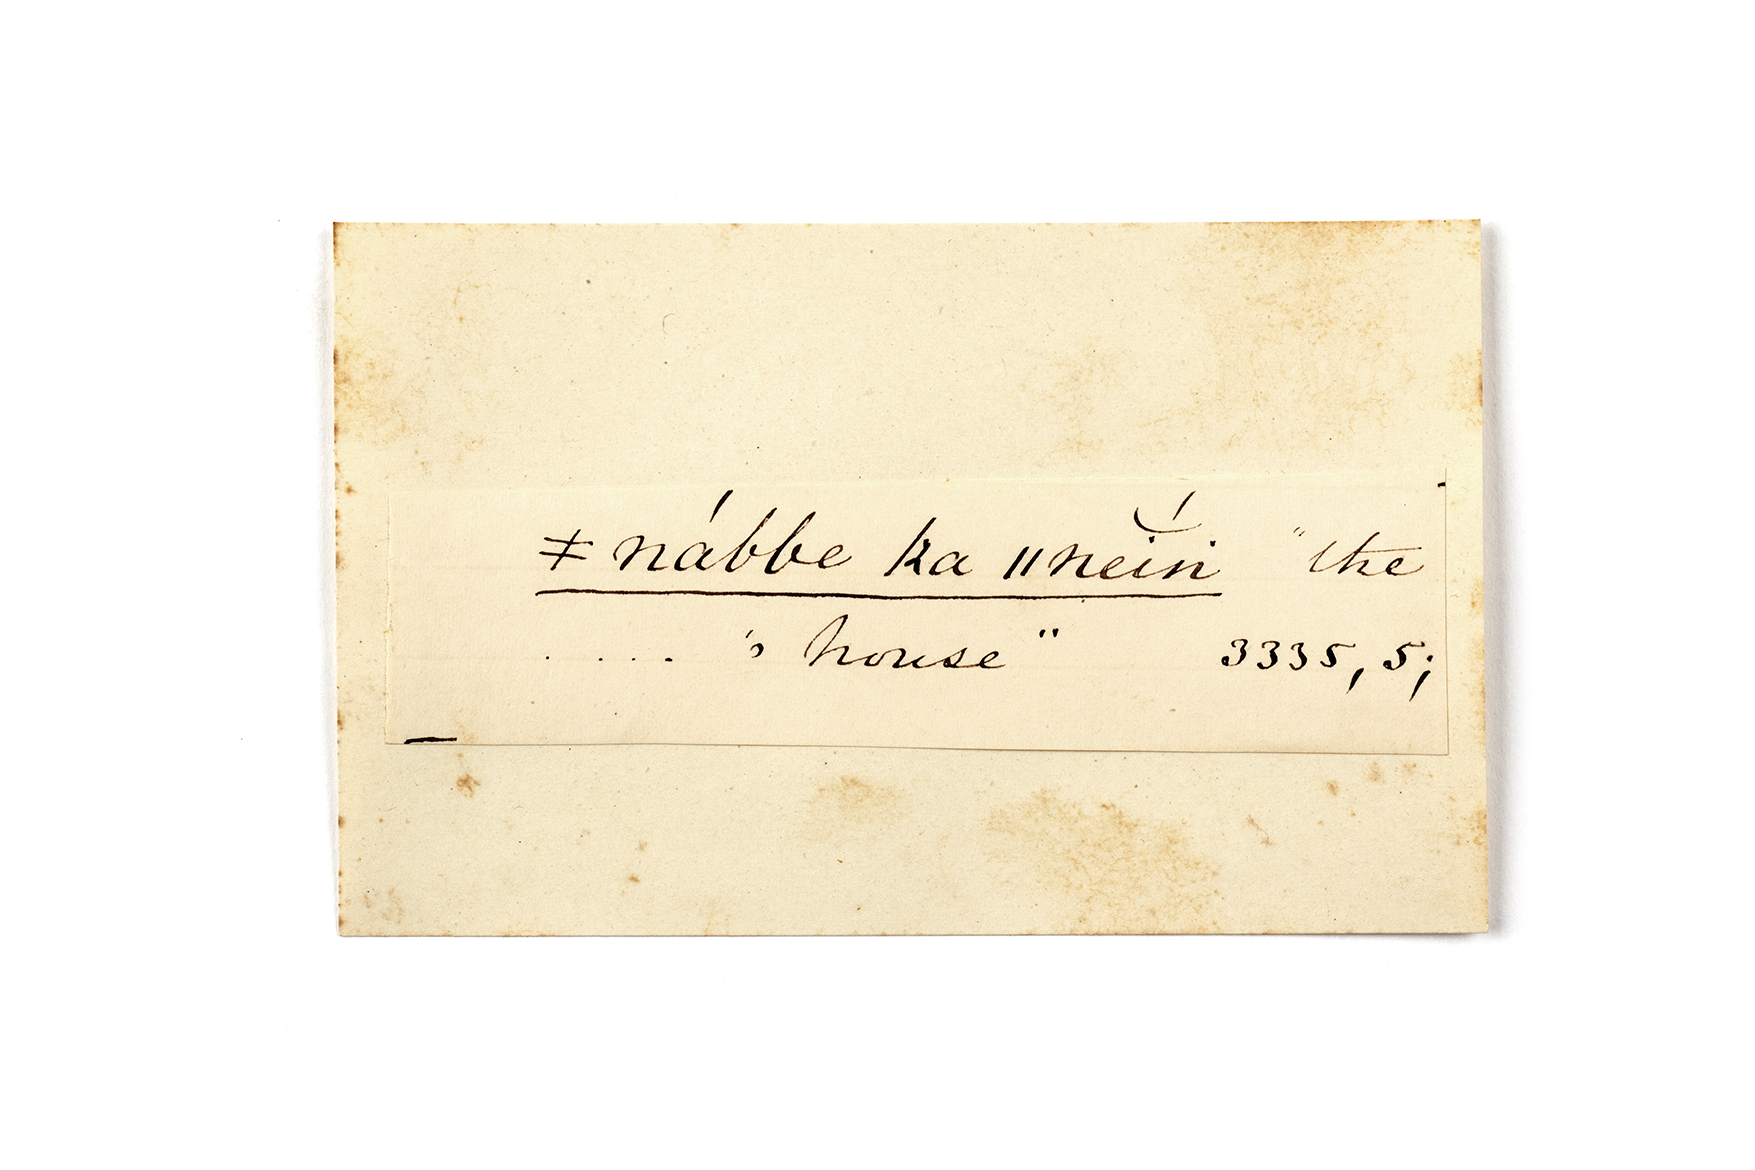 ≠nábbe ka ǁnĕ́in "the
. . . . 's house" 3335, 5;